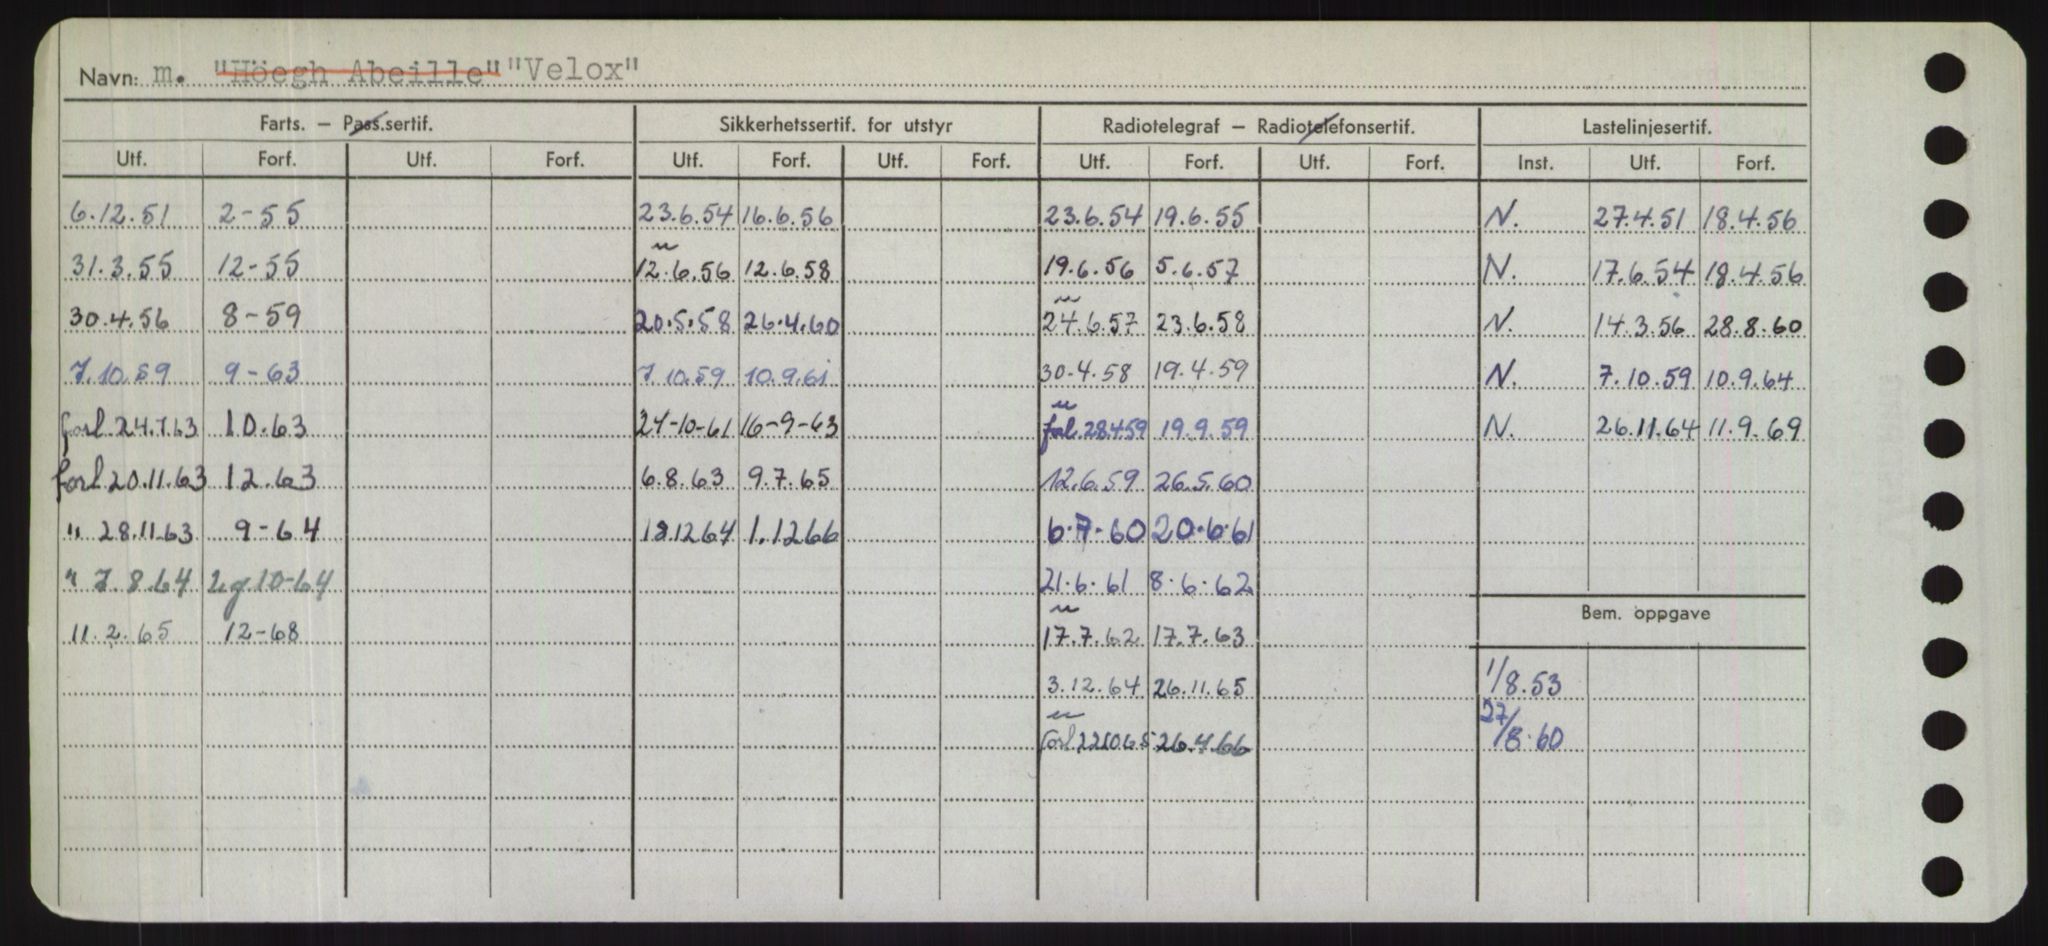 Navn: m. "Höegh Abeille" "Velox"
Farts. — Pass.sertif. Sikkerhetssertif. for utstyr Radiotelegraf — Radiotelefonsertif. Lastelinjesertif.
Utf. Forf. Utf. Forf. Utf. Forf. Utf. Forf. Utf. Forf. Utf. Forf. Inst. Utf. Forf.
6.12.51 2-55 23.6.54 16.6.56 23.6.54 19.6.55 N. 27.4.51 18.4.56
31.3.55 12-55 12.6.56 12.6.58 19.6.56 5.6.57 N. 17.6.54 18.4.56
30.4.56 8-59 20.5.58 26.4.60 24.6.57 23.6.58 N. 14.3.56 28.8.60
7.10.59 9-63 7.10.59 10.9.61 30.4.58 19.4.59 N. 7.10.59 10.9.64
forl 24.7.63 10.63 24-10-61 16-9-63 28.4.59 19.9.59 N. 26.11.64 11.9.69
forl 20.11.63 12.63 6.8.63 9.7.65 12.6.59 26.5.60
" 28.11.63 9-64 18.12.64 1.12.66 6.7.60 20.6.61
" 7.8.64 10-64 21.6.61 8.6.62
Bem. oppgave
11.2.65 12-68 17.7.62 17.7.63
3.12.64 26.11.65 1/8.53
forl 22.10.65 26.4.66 27/8.60